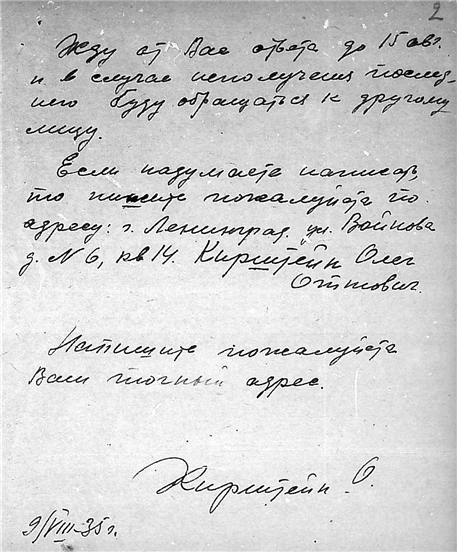 2
Жду от Вас ответа до 15 авг.
и в случае неполучения послед-
него буду обращаться к другому
лицу.
Если надумаете написать,
то пишите пожалуйста по
адресу: г. Ленинград, ул. Войнова
д. N 6, кв 14. Кирштейн Олег
Оттович.
Напишите пожалуйста
Ваш точный адрес.
Кирштейн О.
9/VIII-35 г.